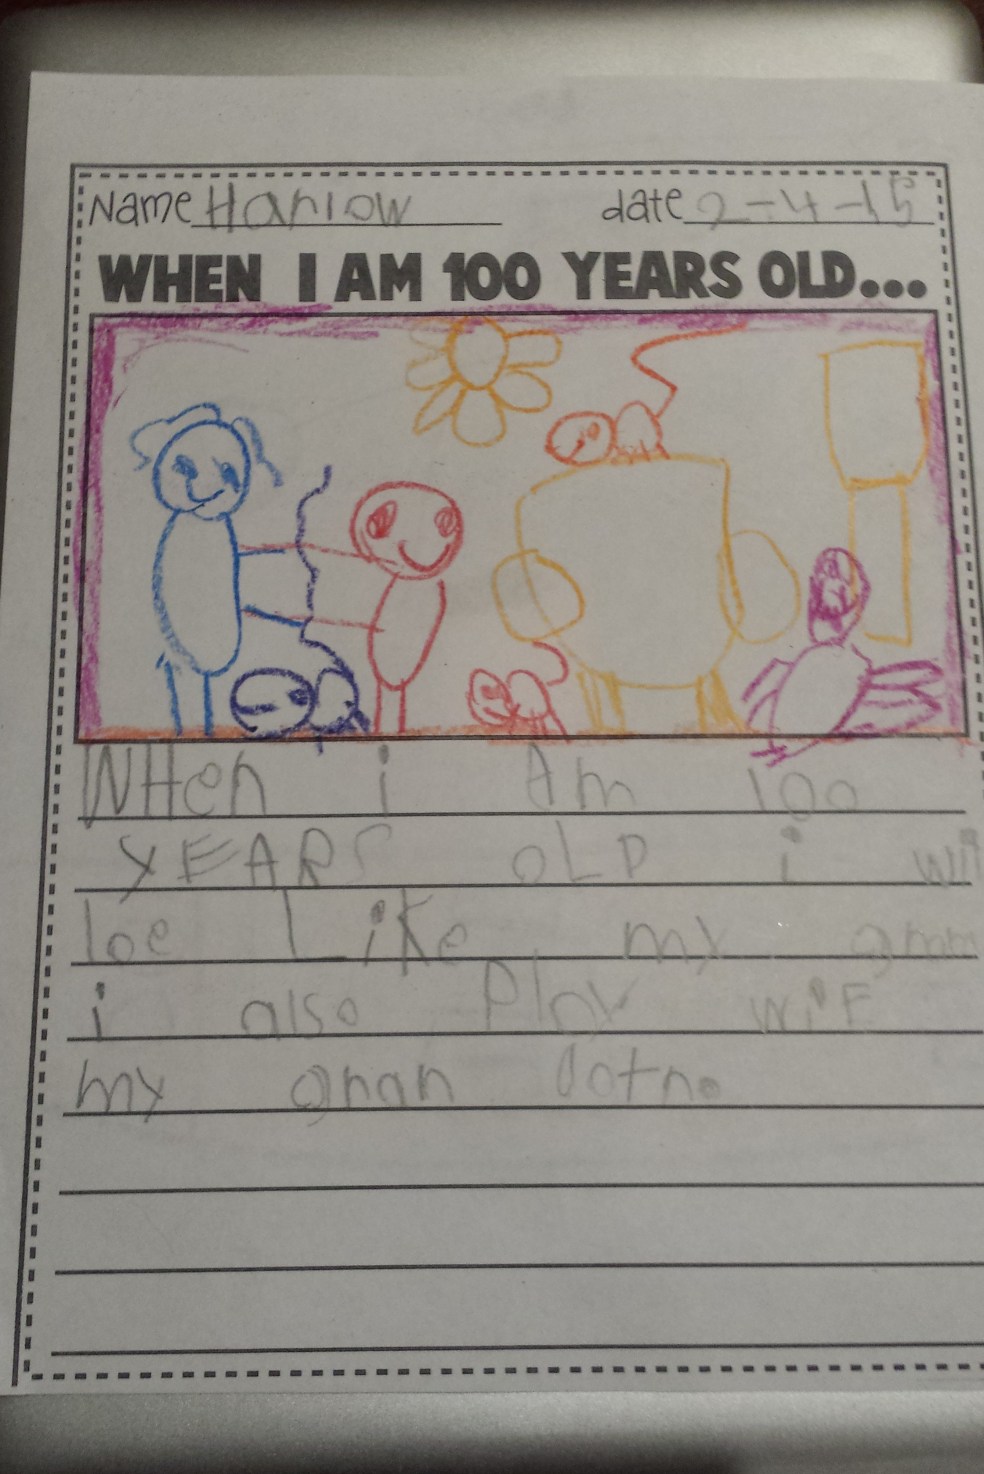 Name Harlow date 2-4-15
WHEN I AM 100 YEARS OLD...
WHen i Am 100
YEARS OLD i wil
be Like my gram
i also Play wiF
my gran dotr.